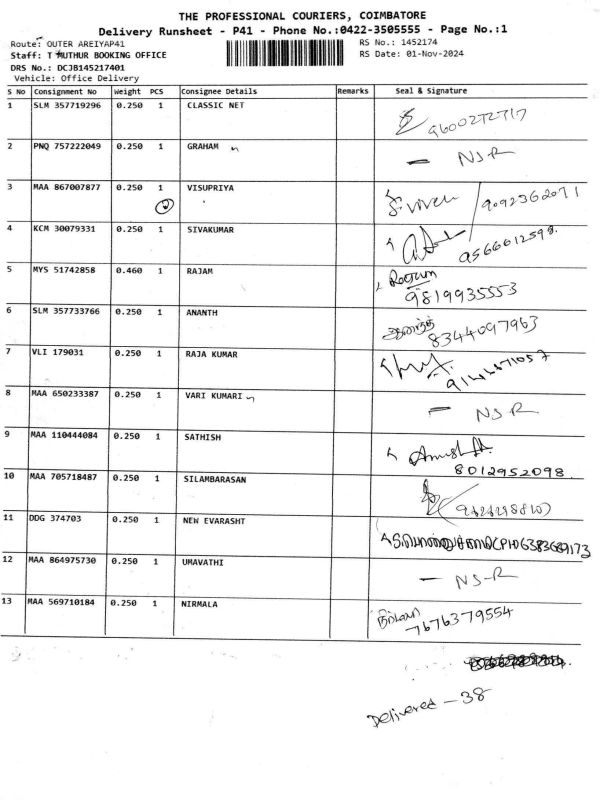 THE PROFESSIONAL COURIERS, COIMBATORE
Delivery Runsheet - P41 - Phone No.:0422-3505555 - Page No.:1
Route: OUTER AREIYAP41 RS No.: 1452174
Staff: T MUTHUR BOOKING OFFICE RS Date: 01-Nov-2024
DRS No.: DCJB145217401
Vehicle: Office Delivery
S No Consignment No Weight PCS Consignee Details Remarks Seal & Signature
1 SLM 357719296 0.250 1 CLASSIC NET 9600272717
2 PNQ 757222049 0.250 1 GRAHAM - NSR
3 MAA 867007877 0.250 1 VISUPRIYA 9092362071
4 KCM 30079331 0.250 1 SIVAKUMAR 9566612598.
5 MYS 51742858 0.460 1 RAJAM 9819935553
6 SLM 357733766 0.250 1 ANANTH ஆனந்த் 8344097963
7 VLI 179031 0.250 1 RAJA KUMAR
8 MAA 650233387 0.250 1 VARI KUMARI - NSR
9 MAA 110444084 0.250 1 SATHISH 8012952098.
10 MAA 705718487 0.250 1 SILAMBARASAN
11 DDG 374703 0.250 1 NEW EVARASHT
12 MAA 864975730 0.250 1 UMAVATHI - NS-R
13 MAA 569710184 0.250 1 NIRMALA நிர்மலா 7676379554
Delivered - 38